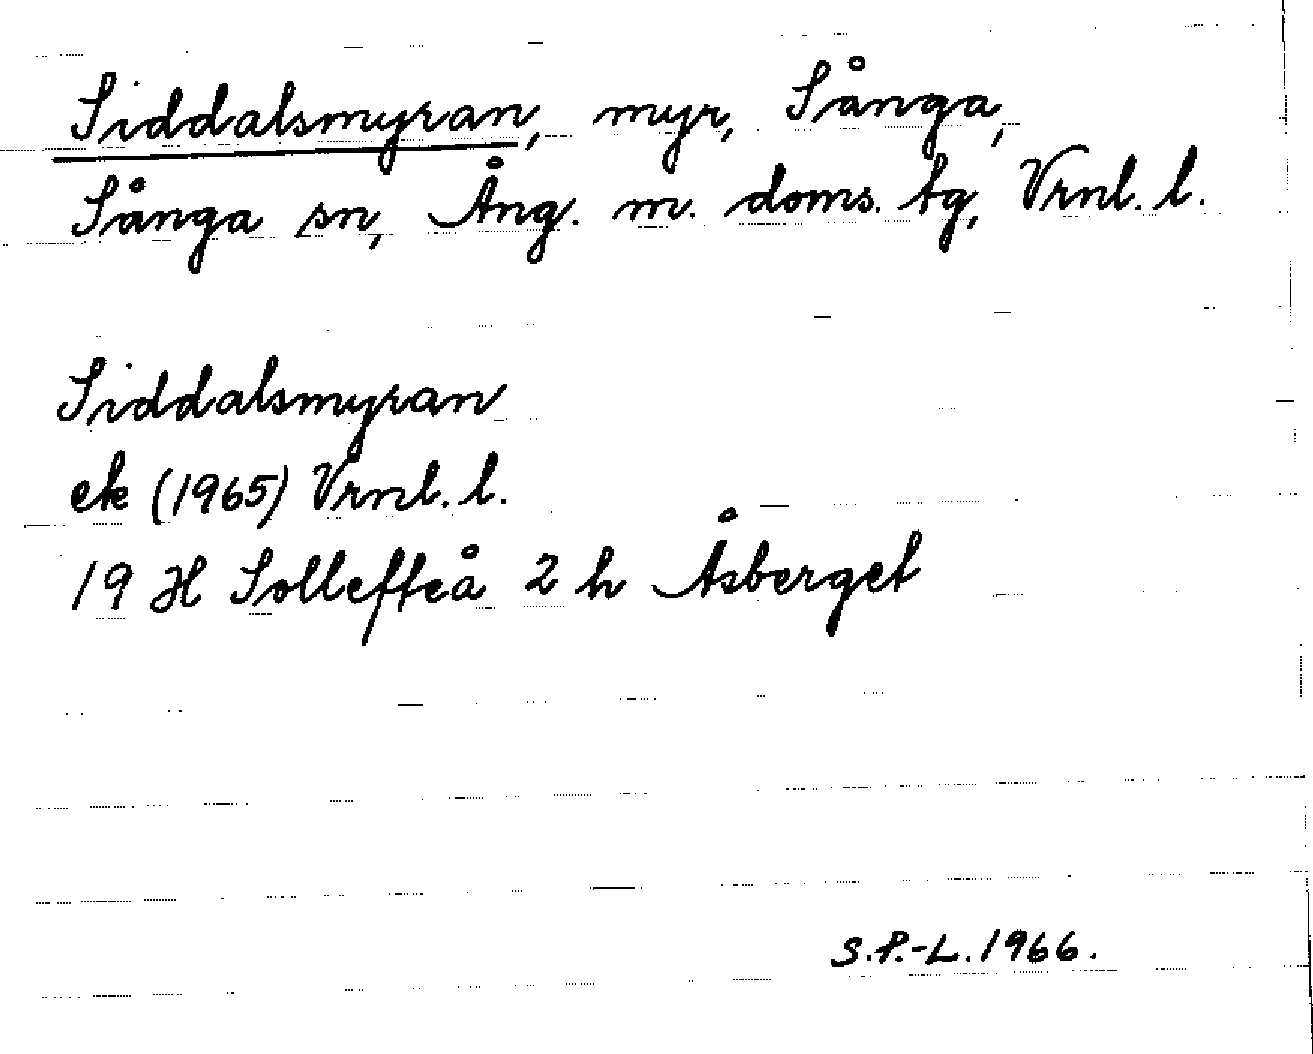 Siddalsmyran, myr, Sånga,
Sånga sn, Ång. m. doms. tg, Vrnl. l.
Siddalsmyran
ek (1965) Vrnl. l.
19 H Sollefteå 2 h Åsberget
S.P.-L. 1966.